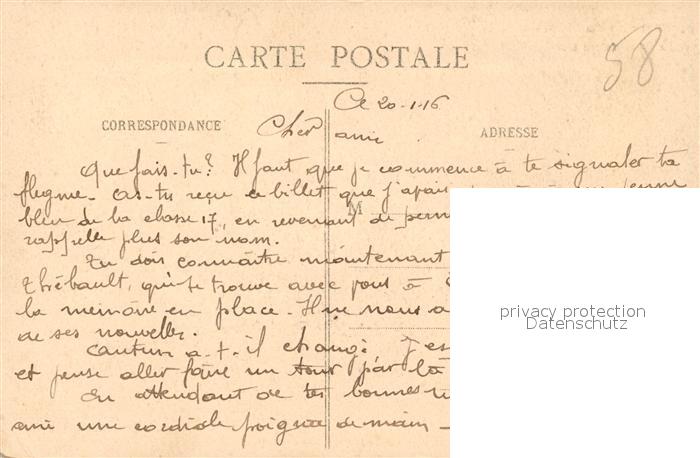 58
CARTE POSTALE
Ce 20-1-16
CORRESPONDANCE
Cher ami
ADRESSE
Que fais-tu? Il faut que je commence à te signaler ta
flegme. As-tu reçu ce billet que j'avais
bleu de la classe 17, en revenant de perm
M
rappelle plus son nom.
Tu dois connaître maintenant
Thiébault, qui se trouve avec vous à
la mémoire en place. Il ne nous a
de ses nouvelles.
a-t-il changé J'es
et pense aller faire un tour par là
En attendant de tes bonnes
ami une cordiale poignée de main -
privacy protection
Datenschutz